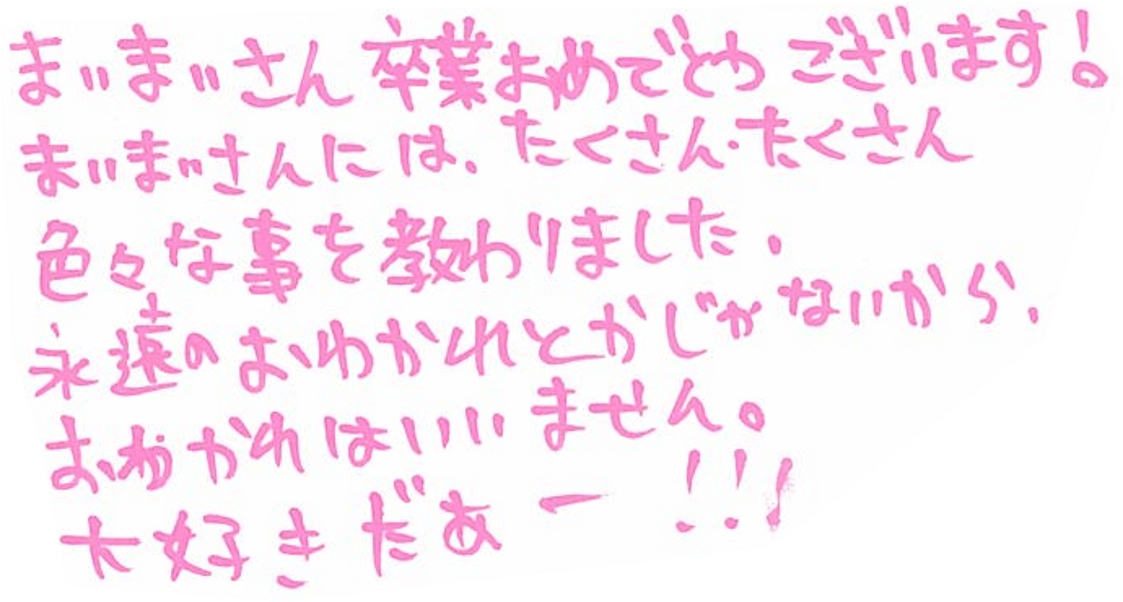 まいまいさん 卒業おめでとう ございます!
まいまいさんには、たくさん・たくさん
色々な事を教わりました。
永遠のおわかれとかじゃないから、
おわかれはいいません。
大好きだぁー!!!